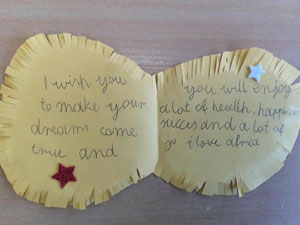 I wish you
to make your
dreams come
true and
you will enjoy
a lot of health, happines
succes and a lot of
jo i love